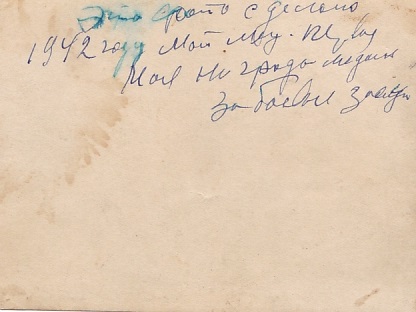 Это фото сделано
1942 году Мой
Моя награда медаль
За боевые заслуги